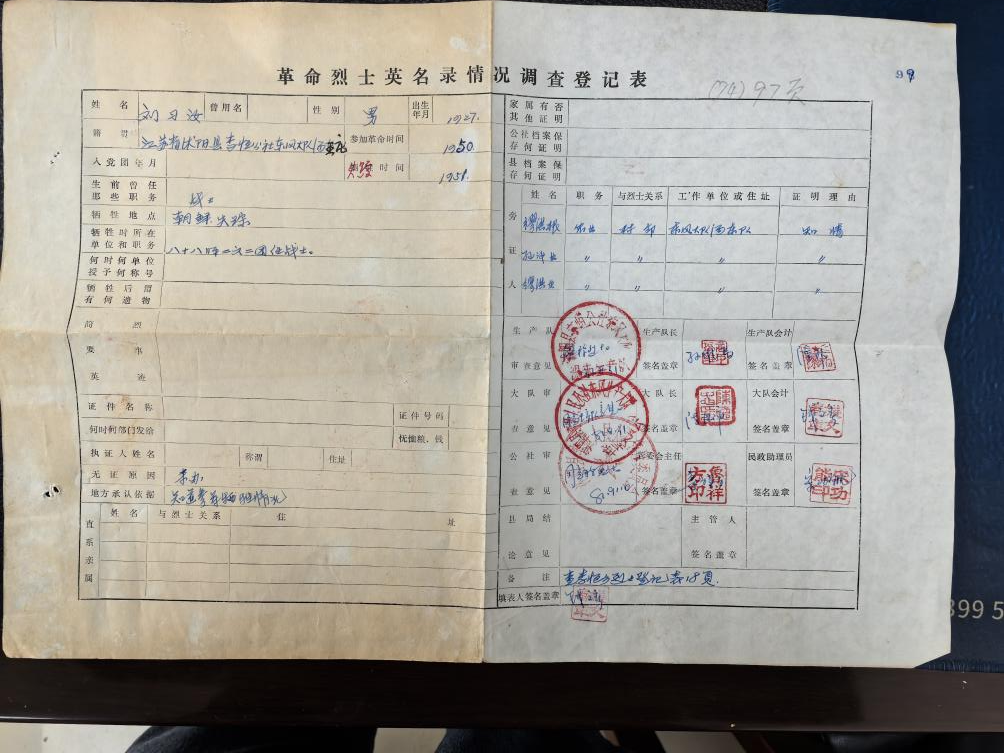 革命烈士英名录情况调查登记表
99
(74) 97页
姓名 刘习汝 曾用名 性别 男 出生年月 1927.
籍贯 江苏省沭阳县李恒公社东风大队西 参加革命时间 1950.
入党团年月 失踪 时间 1951.
生前曾任那些职务 战士
牺牲地点 朝鲜失踪
牺牲时所在单位和职务 八十八师二六二团任战士。
何时何单位授予何称号
牺牲后留有何遗物
简要英迹 烈事
证件名称 证件号码
何时何部门发给 抚恤粮、钱
执证人姓名 称谓 住址
无证原因 未办
地方承认依据 知道参军 牺牲情况
直系亲属 姓名 与烈士关系 住址
家属有否其他证明
公社档案保存何证明
县档案保存何证明
旁证人 姓名 职务 与烈士关系 工作单位或住址 证明理由
农业 村邻 东风大队西东队 知情
〃 〃 〃 〃
〃 〃 〃 〃
生产队审查意见 生产队长签名盖章 生产队会计签名盖章
大队审查意见 大队长签名盖章 大队会计签名盖章
公社审查意见 81.9.10 管委会主任签名盖章 鲁祥方印 民政助理员签名盖章
县局结论意见 主管人签名盖章
备注 查李恒公社烈士登记表18页
填表人签名盖章
899 5